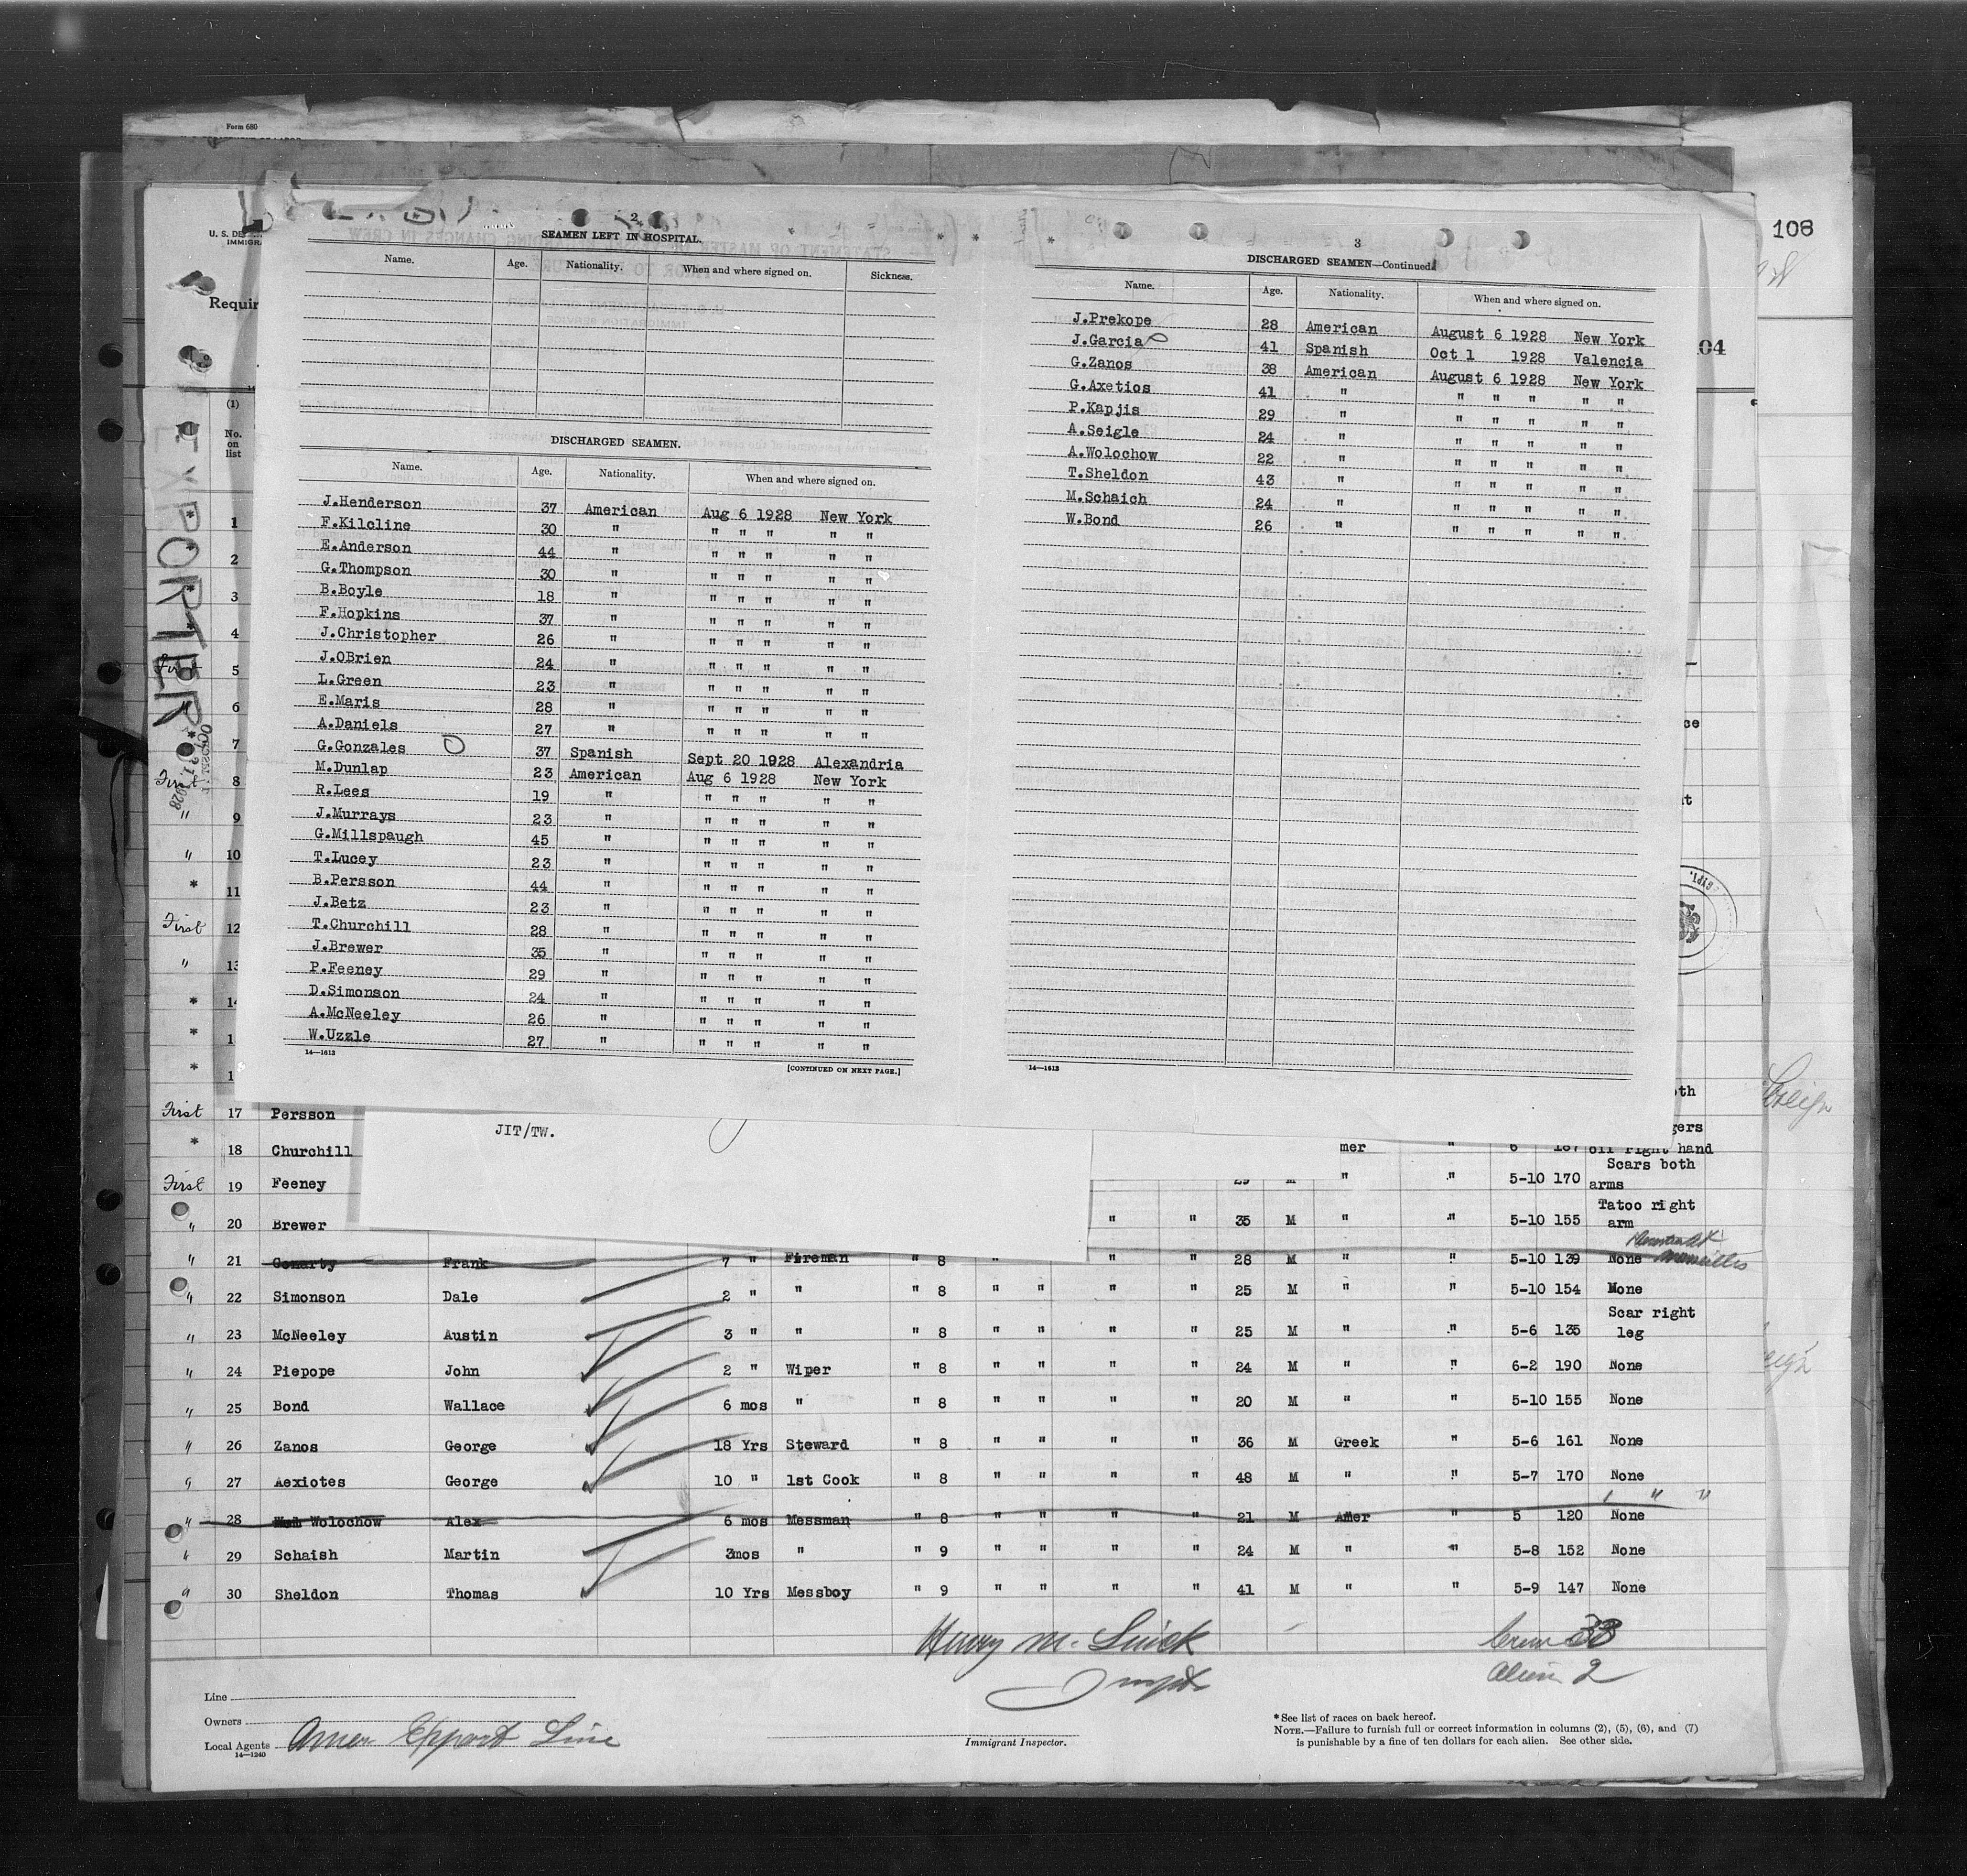 Form 680
108
U. S. DE
IMMIGRA
Requir
104
EXPORTER
2
SEAMEN LEFT IN HOSPITAL.
Name. Age. Nationality. When and where signed on. Sickness.
DISCHARGED SEAMEN.
Name. Age. Nationality. When and where signed on.
J.Henderson 37 American Aug 6 1928 New York
F.Kilcline 30 " " " " " "
E.Anderson 44 " " " " " "
G.Thompson 30 " " " " " "
B.Boyle 18 " " " " " "
F.Hopkins 37 " " " " " "
J.Christopher 26 " " " " " "
J.OBrien 24 " " " " " "
L.Green 23 " " " " " "
E.Maris 28 " " " " " "
A.Daniels 27 " " " " " "
G.Gonzales 37 Spanish Sept 20 1928 Alexandria
M.Dunlap 23 American Aug 6 1928 New York
R.Lees 19 " " " " " "
J.Murrays 23 " " " " " "
G.Millspaugh 45 " " " " " "
T.Lucey 23 " " " " " "
B.Persson 44 " " " " " "
J.Betz 23 " " " " " "
T.Churchill 28 " " " " " "
J.Brewer 35 " " " " " "
P.Feeney 29 " " " " " "
D.Simonson 24 " " " " " "
A.McNeeley 26 " " " " " "
W.Uzzle 27 " " " " " "
14—1613
[CONTINUED ON NEXT PAGE.]
3
DISCHARGED SEAMEN—Continued.
Name. Age. Nationality. When and where signed on.
J.Prekope 28 American August 6 1928 New York
J.Garcia 41 Spanish Oct 1 1928 Valencia
G.Zanos 38 American August 6 1928 New York
G.Axetios 41 " " " " " "
P.Kapjis 29 " " " " " "
A.Seigle 24 " " " " " "
A.Wolochow 22 " " " " " "
T.Sheldon 43 " " " " " "
M.Schaich 24 " " " " " "
W.Bond 26 " " " " " "
14—1613
(1)
No.
on
list
1
2
3
4
First 5
6
7
First 8
" 9
" 10
* 11
First 12
" 13
* 14
* 1
* 1
First 17 Persson
JIT/TW.
* 18 Churchill mer " 6 187 off right hand
First 19 Feeney 29 M " " 5-10 170 Scars both arms
" 20 Brewer " " 35 M " " 5-10 155 Tatoo right arm
" 21 Conarty Frank 7 " Fireman " 8 " " " 28 M " " 5-10 139 None
" 22 Simonson Dale 2 " " " 8 " " " " 25 M " " 5-10 154 None
" 23 McNeeley Austin 3 " " " 8 " " " " 25 M " " 5-6 135 Scar right leg
" 24 Piepope John 2 " Wiper " 8 " " " " 24 M " " 6-2 190 None
" 25 Bond Wallace 6 mos " " 8 " " " " 20 M " " 5-10 155 None
" 26 Zanos George 18 Yrs Steward " 8 " " " " 36 M Greek " 5-6 161 None
" 27 Aexiotes George 10 " 1st Cook " 8 " " " " 48 M " " 5-7 170 None
" 28 Wolochow Alex 6 mos Messman " 8 " " " " 21 M Amer " 5 120 None
" 29 Schaish Martin 3mos " " 9 " " " " 24 M " " 5-8 152 None
" 30 Sheldon Thomas 10 Yrs Messboy " 9 " " " " 41 M " " 5-9 147 None
Crew 33
Alien 2
Henry M.
Line
Owners
Local Agents Amer Export Line
14—1240
Immigrant Inspector.
* See list of races on back hereof.
NOTE.—Failure to furnish full or correct information in columns (2), (5), (6), and (7)
is punishable by a fine of ten dollars for each alien. See other side.